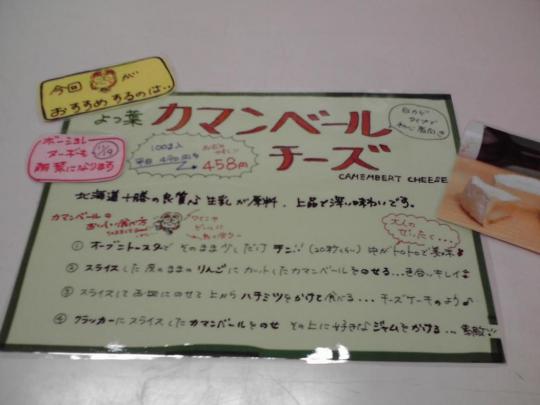 今回 が
おすすめするのは…
よつ葉 カマンベール
チーズ
CAMEMBERT CHEESE
100g入
平日 498円を
458円
ボージョレー
ヌーボーも 11/19
解禁になります
北海道十勝の良質な生乳が原料、上品で深い味わいです。
カマンベールの
おいしい食べ方
大人の
ぜいたく…
① オーブントースターで そのまま少しだけ チン!! 中がトロトロで美味
② スライスした 皮のままの りんごに カットしたカマンベールをのせる…色合いキレイ
③ スライスして お皿にのせて 上から ハチミツをかけて食べる… チーズケーキのよう♪
④ クラッカーに スライスした カマンベールをのせ その上に好きな ジャムをかける… 素敵